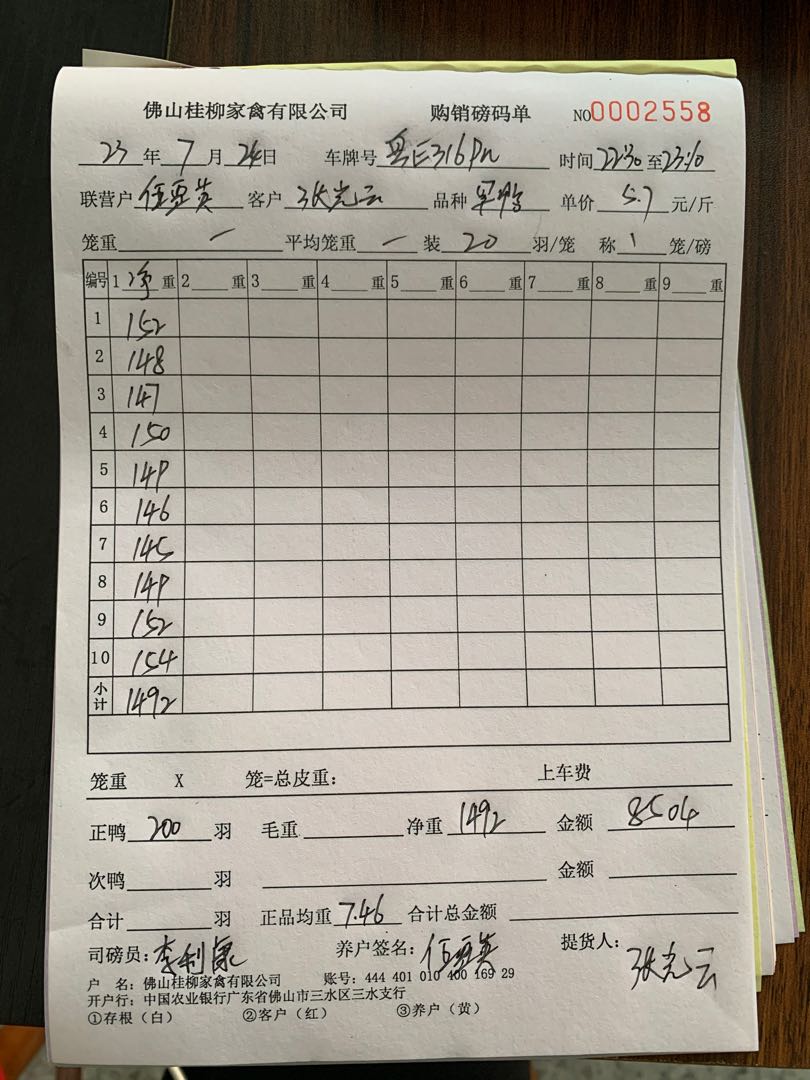 佛山桂柳家禽有限公司 购销磅码单 NO0002558
23年7月24日 车牌号 粤E316 时间22:30至23:10
联营户 任亚英 客户 张光云 品种 单价 5.7 元/斤
笼重 一 平均笼重 一 装 20 羽/笼 称 1 笼/磅
编号 1 净 重 2 重 3 重 4 重 5 重 6 重 7 重 8 重 9 重
1 152
2 148
3 147
4 150
5 149
6 146
7 145
8 149
9 152
10 154
小计 1492
笼重 X 笼=总皮重： 上车费
正鸭 200 羽 毛重 净重 1492 金额 8504
次鸭 羽 金额
合计 羽 正品均重 7.46 合计总金额
司磅员：李利康 养户签名：任亚英 提货人：张光云
户 名：佛山桂柳家禽有限公司 账号：444 401 010 400 169 29
开户行：中国农业银行广东省佛山市三水区三水支行
①存根（白） ②客户（红） ③养户（黄）